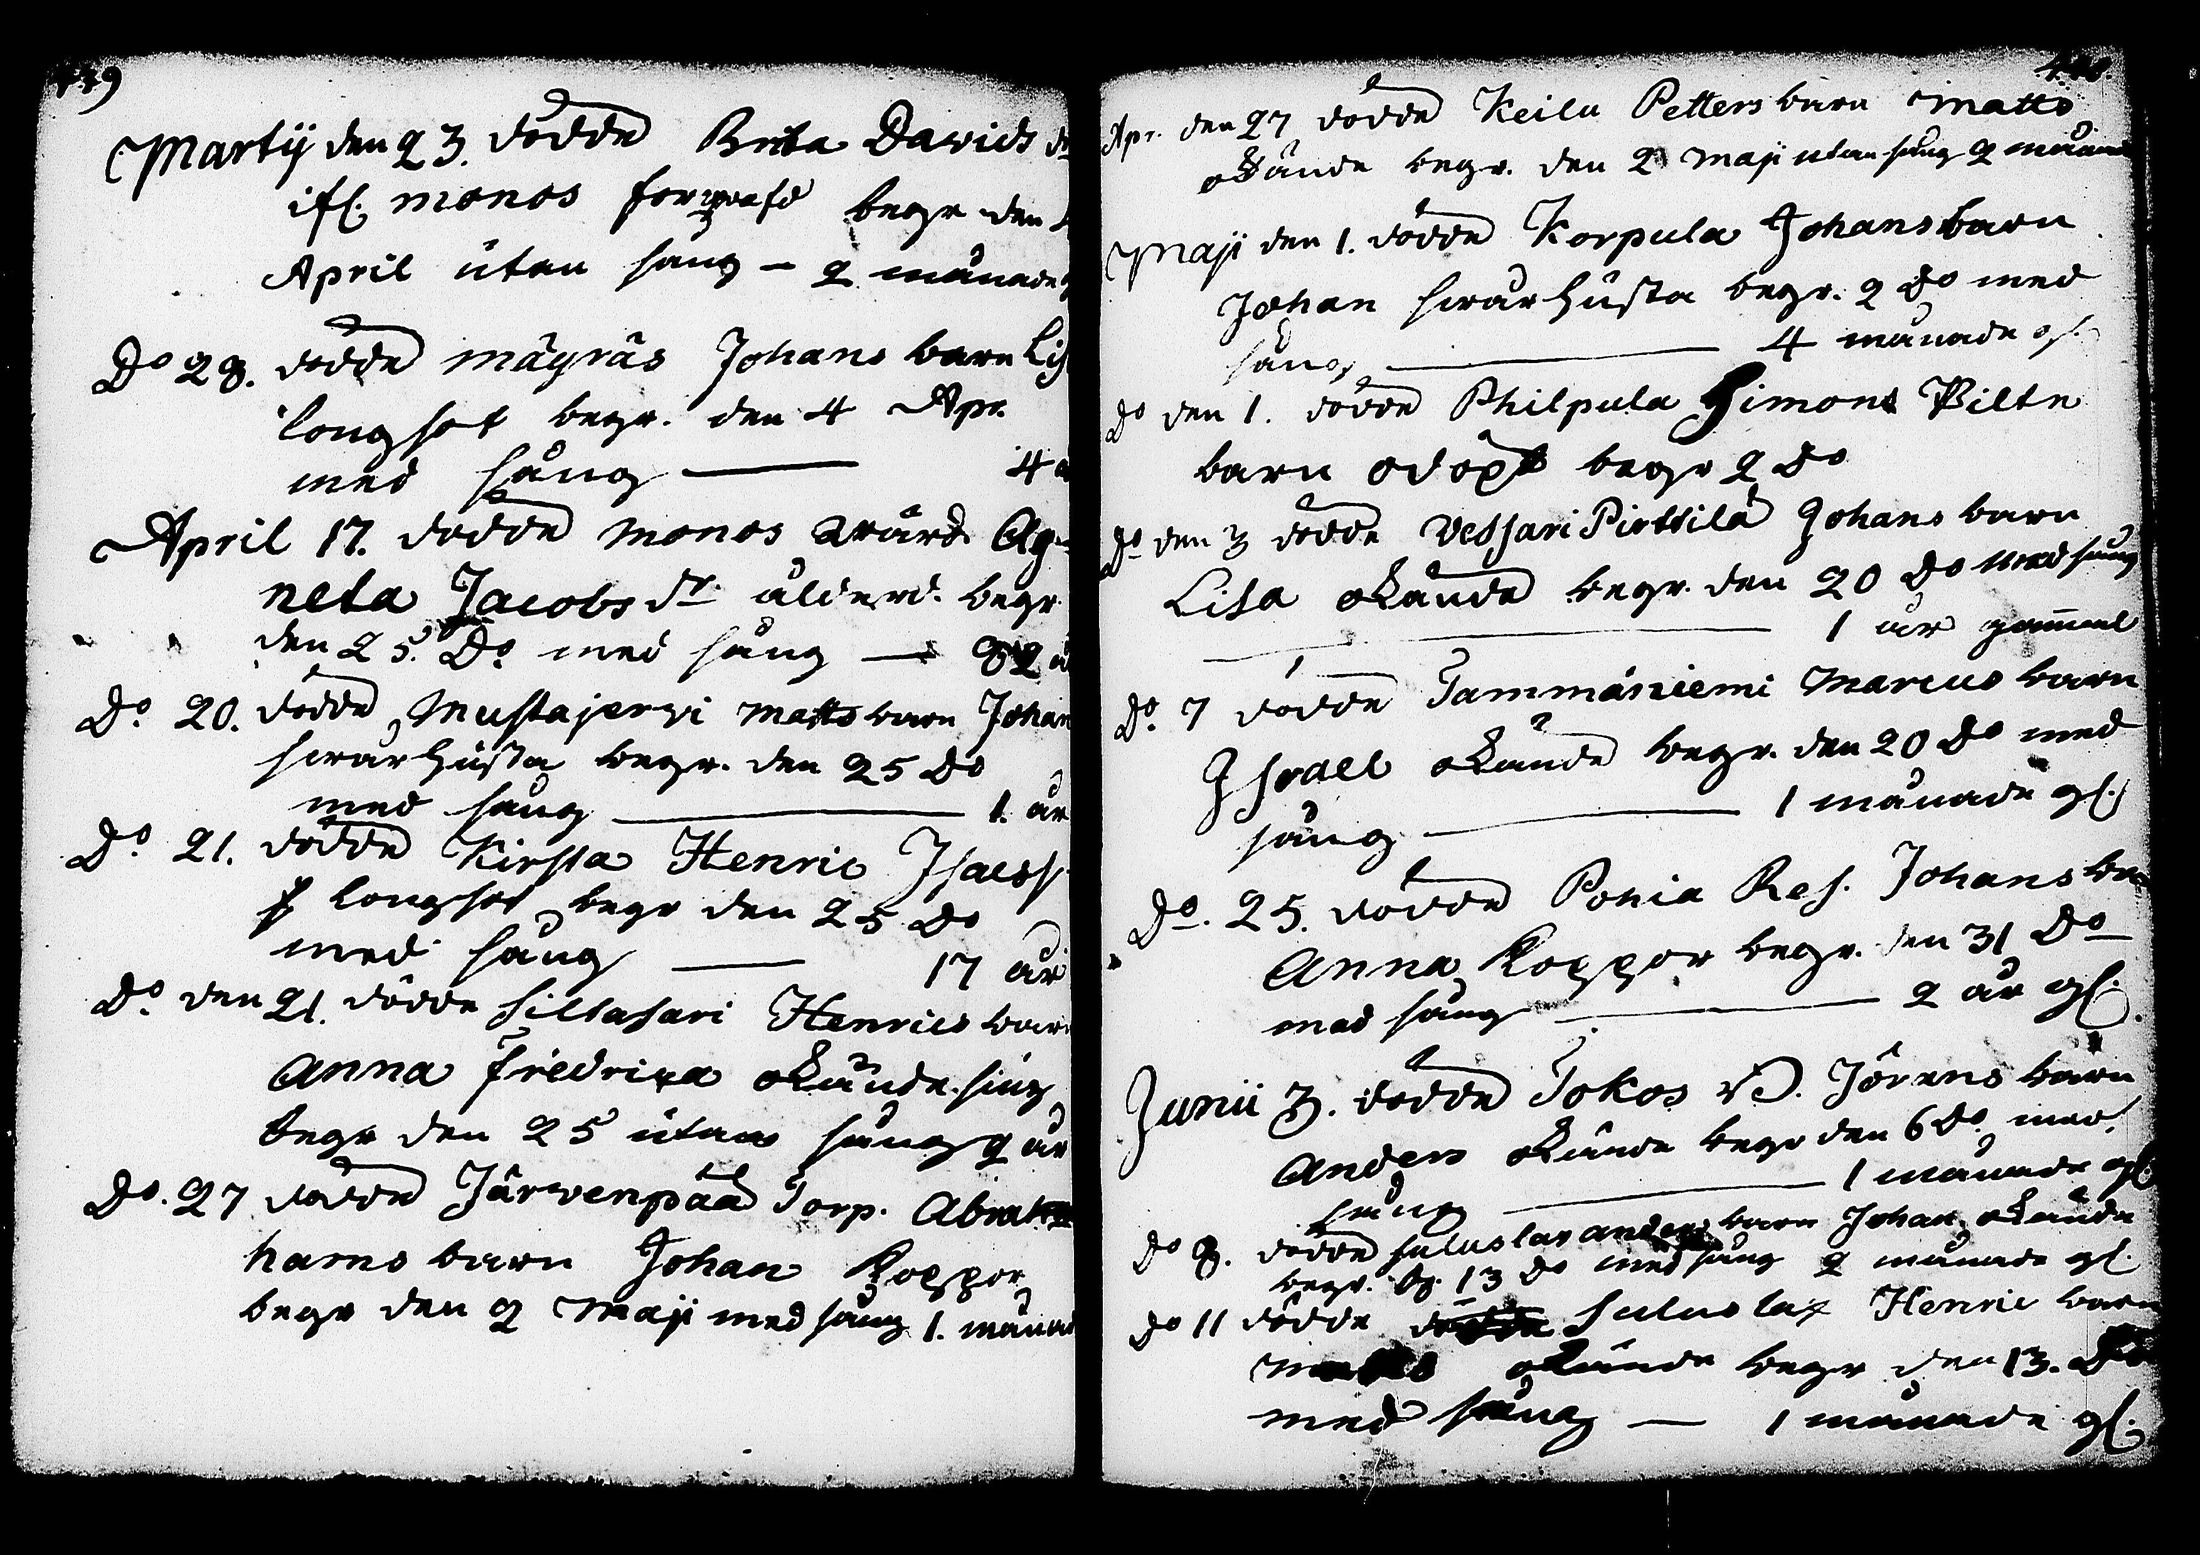 Martij den 23. dödde Brita Davids dr
ifr. monos begr den
April utan sång – 2 månade
Do 28. dödde mäyräs Johans barn Lis
longsot begr. den 4 Apr.
med sång — 4
April 17. dödde monos Wärd Ag-
neta Jacobs dr ålderd. begr
den 25. Do med sång — 82 å
Do 20. dödde Mustajervi matts barn Johan
swår hüsta begr. den 25 Do
med sång — 1. år
Do 21. dödde Kirsta Henric Isacss
longsot begr den 25 Do
med sång — 17 år
Do den 21. dödde Siltasari Henrics barn
Anna Fredrica okände siuk
begr den 25 utan sång 2 år
Do. 27 dödde Järvenpää Torp. Abra
hams barn Johan Koppor
begr den 2 Maji med sång 1. månad
Apr. den 27 dödde Keilu Petters barn Matts
okände begr. den 2 Maji utan sång 2 månade
Maji den 1. dödde Korpula Johans barn
Johan swår hüsta begr. 2 Do med
sång — 4 månade gl.
Do den 1. dödde Philpula Simons Pilte
barn odöpt begr 2 Do
Do den 3 dödde Vessari Pirttilä Johans barn
Lisa okände begr. den 20 Do med sång
— 1 år gammal
Do. 7 dödde Tammäniemi Marcus barn
Israel okände begr. den 20 Do med
sång — 1 månade gl.
Do. 25. dödde Pohia Res. Johans ba
Anna Koppor begr. den 31 Do
med sång — 2 år gl.
Junii 3. dödde Tokos Jörans barn
Anders okände begr den 6 Do. med
sång — 1 månade gl
Do 8. dödde Suluslax Anders barn Johan okände
begr. 13 Do med sång 2 månade gl.
Do 11 dödde Suluslax Henric barn
Matts okände begr den 13. Do
med sång — 1 månade gl.